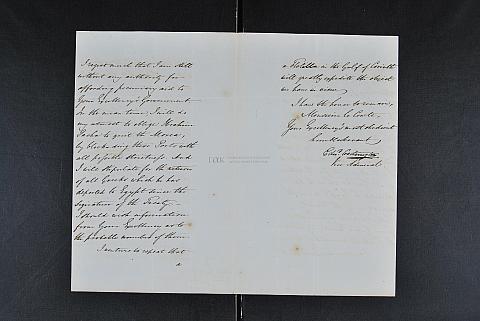 I regret much that I am still
without any authority for
affording pecuniary aid to
Your Excellency's Government.
In the mean time I will do
my utmost to oblige Ibrahim
Pasha to quit the Morea,
by blockading these Ports with
all possible strictness. And
I will stipulate for the return
of all Greeks which he has
deported to Egypt since the
signature of the Treaty.
I should wish information
from Your Excellency as to
the probable number of them.
I venture to repeat that
a
a Flotilla in the Gulf of Corinth
will greatly expedite the object
we have in view.
I have the honor to remain,
Monsieur le Comte,
Your Excellency's most obedient
humble servant
Edwd Codrington
Vice Admiral